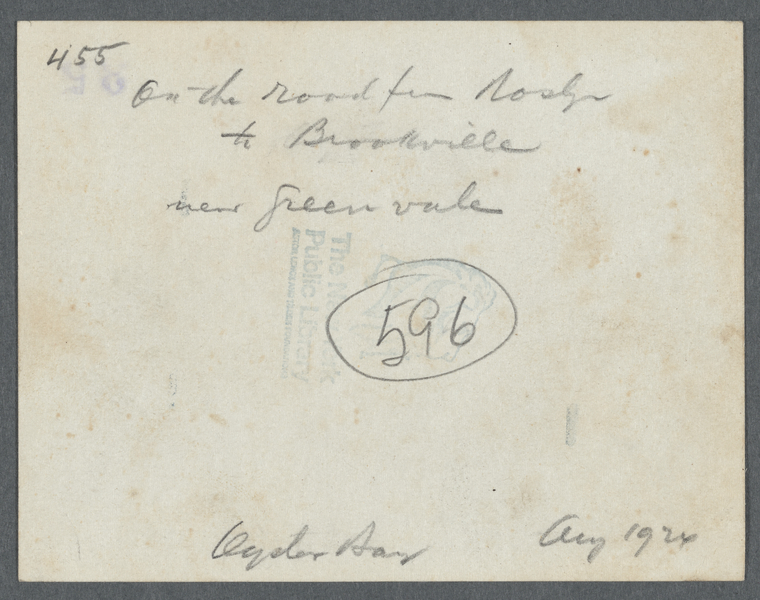 455
On the road fm Roslyn
to Brookville
near Greenvale
The New York
Public Library
596
Oyster Bay
Aug 192